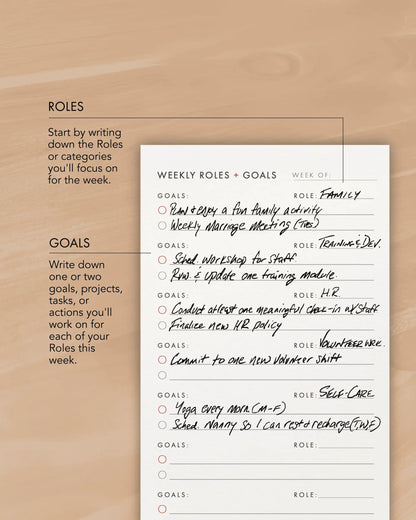 ROLES
Start by writing
down the Roles
or categories
you'll focus on
for the week.
WEEKLY ROLES + GOALS WEEK OF:
GOALS: ROLE: FAMILY
Plan & enjoy a fun family activity
Weekly Marriage Meeting (Tues)
GOALS
Write down
one or two
goals, projects,
tasks, or
actions you'll
work on for
each of your
Roles this
week.
GOALS: ROLE: TRAINING & DEV.
Sched workshop for staff
Rvw & update one training module.
GOALS: ROLE: H.R.
Conduct atleast one meaningful check-in w/staff
Finalize new HR policy
GOALS: ROLE: VOLUNTEER WRK.
Commit to one new volunteer shift
GOALS: ROLE: SELF-CARE
Yoga every morn. (M-F)
Sched Nanny so I can rest & recharge (T,W,F)
GOALS: ROLE:
GOALS: ROLE: